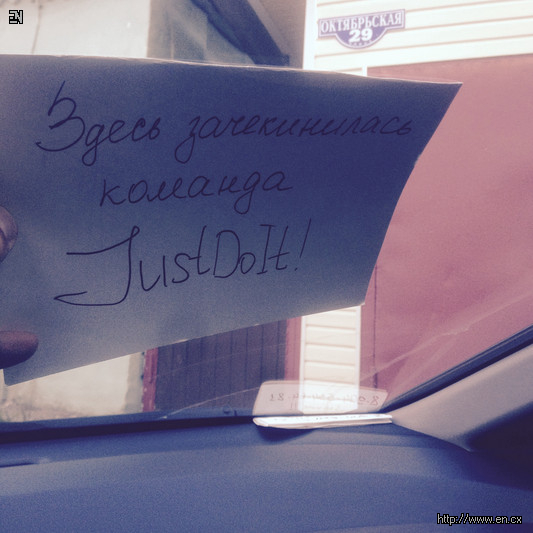 EN
ОКТЯБРЬСКАЯ
29
Здесь зачекинилась
команда
JustDoIt!
http://www.en.cx